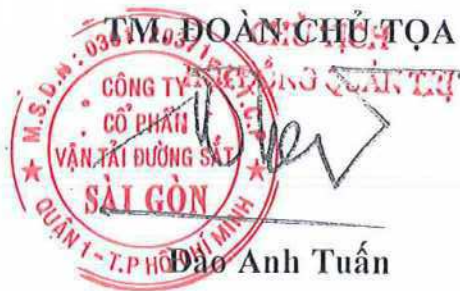 TM. ĐOÀN CHỦ TỌA
CHỦ TỊCH
HỘI ĐỒNG QUẢN TRỊ
M.S.D.N:
C.T.C.P
CÔNG TY
CỔ PHẦN
VẬN TẢI ĐƯỜNG SẮT
SÀI GÒN
QUẬN 1 - T.P HỒ CHÍ MINH
Đào Anh Tuấn